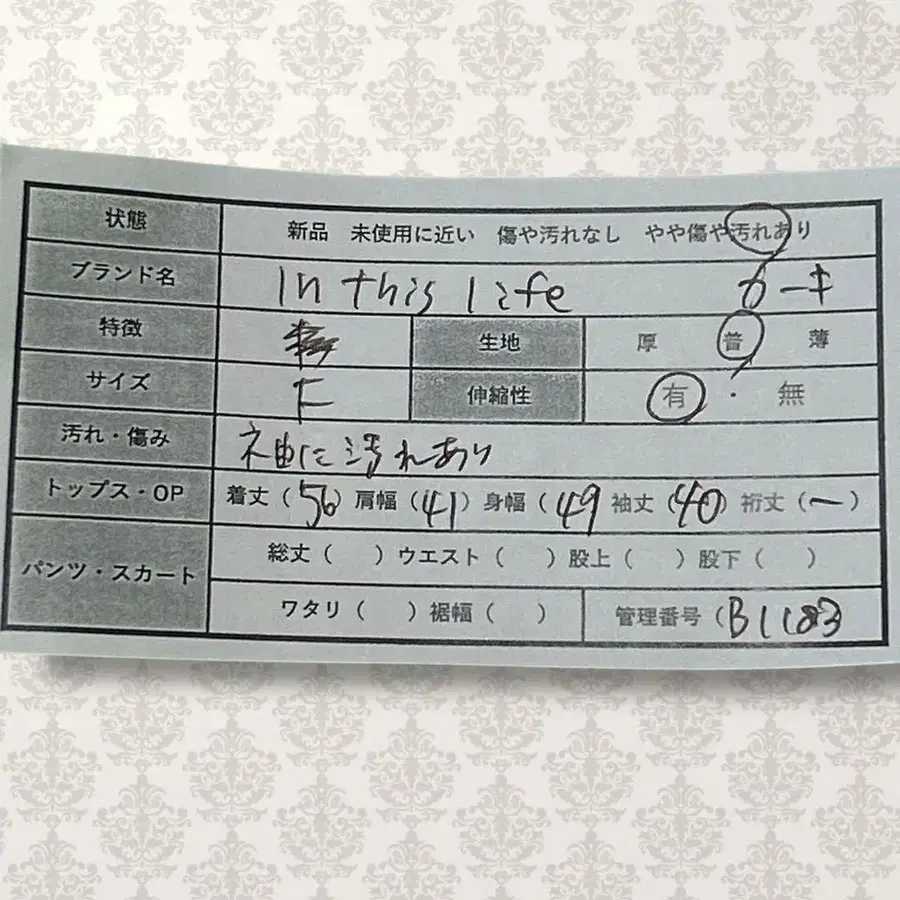 状態 新品 未使用に近い 傷や汚れなし やや傷や汚れあり
ブランド名 In this life カーキ
特徴 生地 厚 普 薄
サイズ F 伸縮性 有・無
汚れ・傷み 袖に汚れあり
トップス・OP 着丈(56) 肩幅(41) 身幅(49 袖丈(40) 裄丈(ー)
パンツ・スカート 総丈( ) ウエスト( ) 股上( ) 股下( )
ワタリ( ) 裾幅( ) 管理番号(B1183